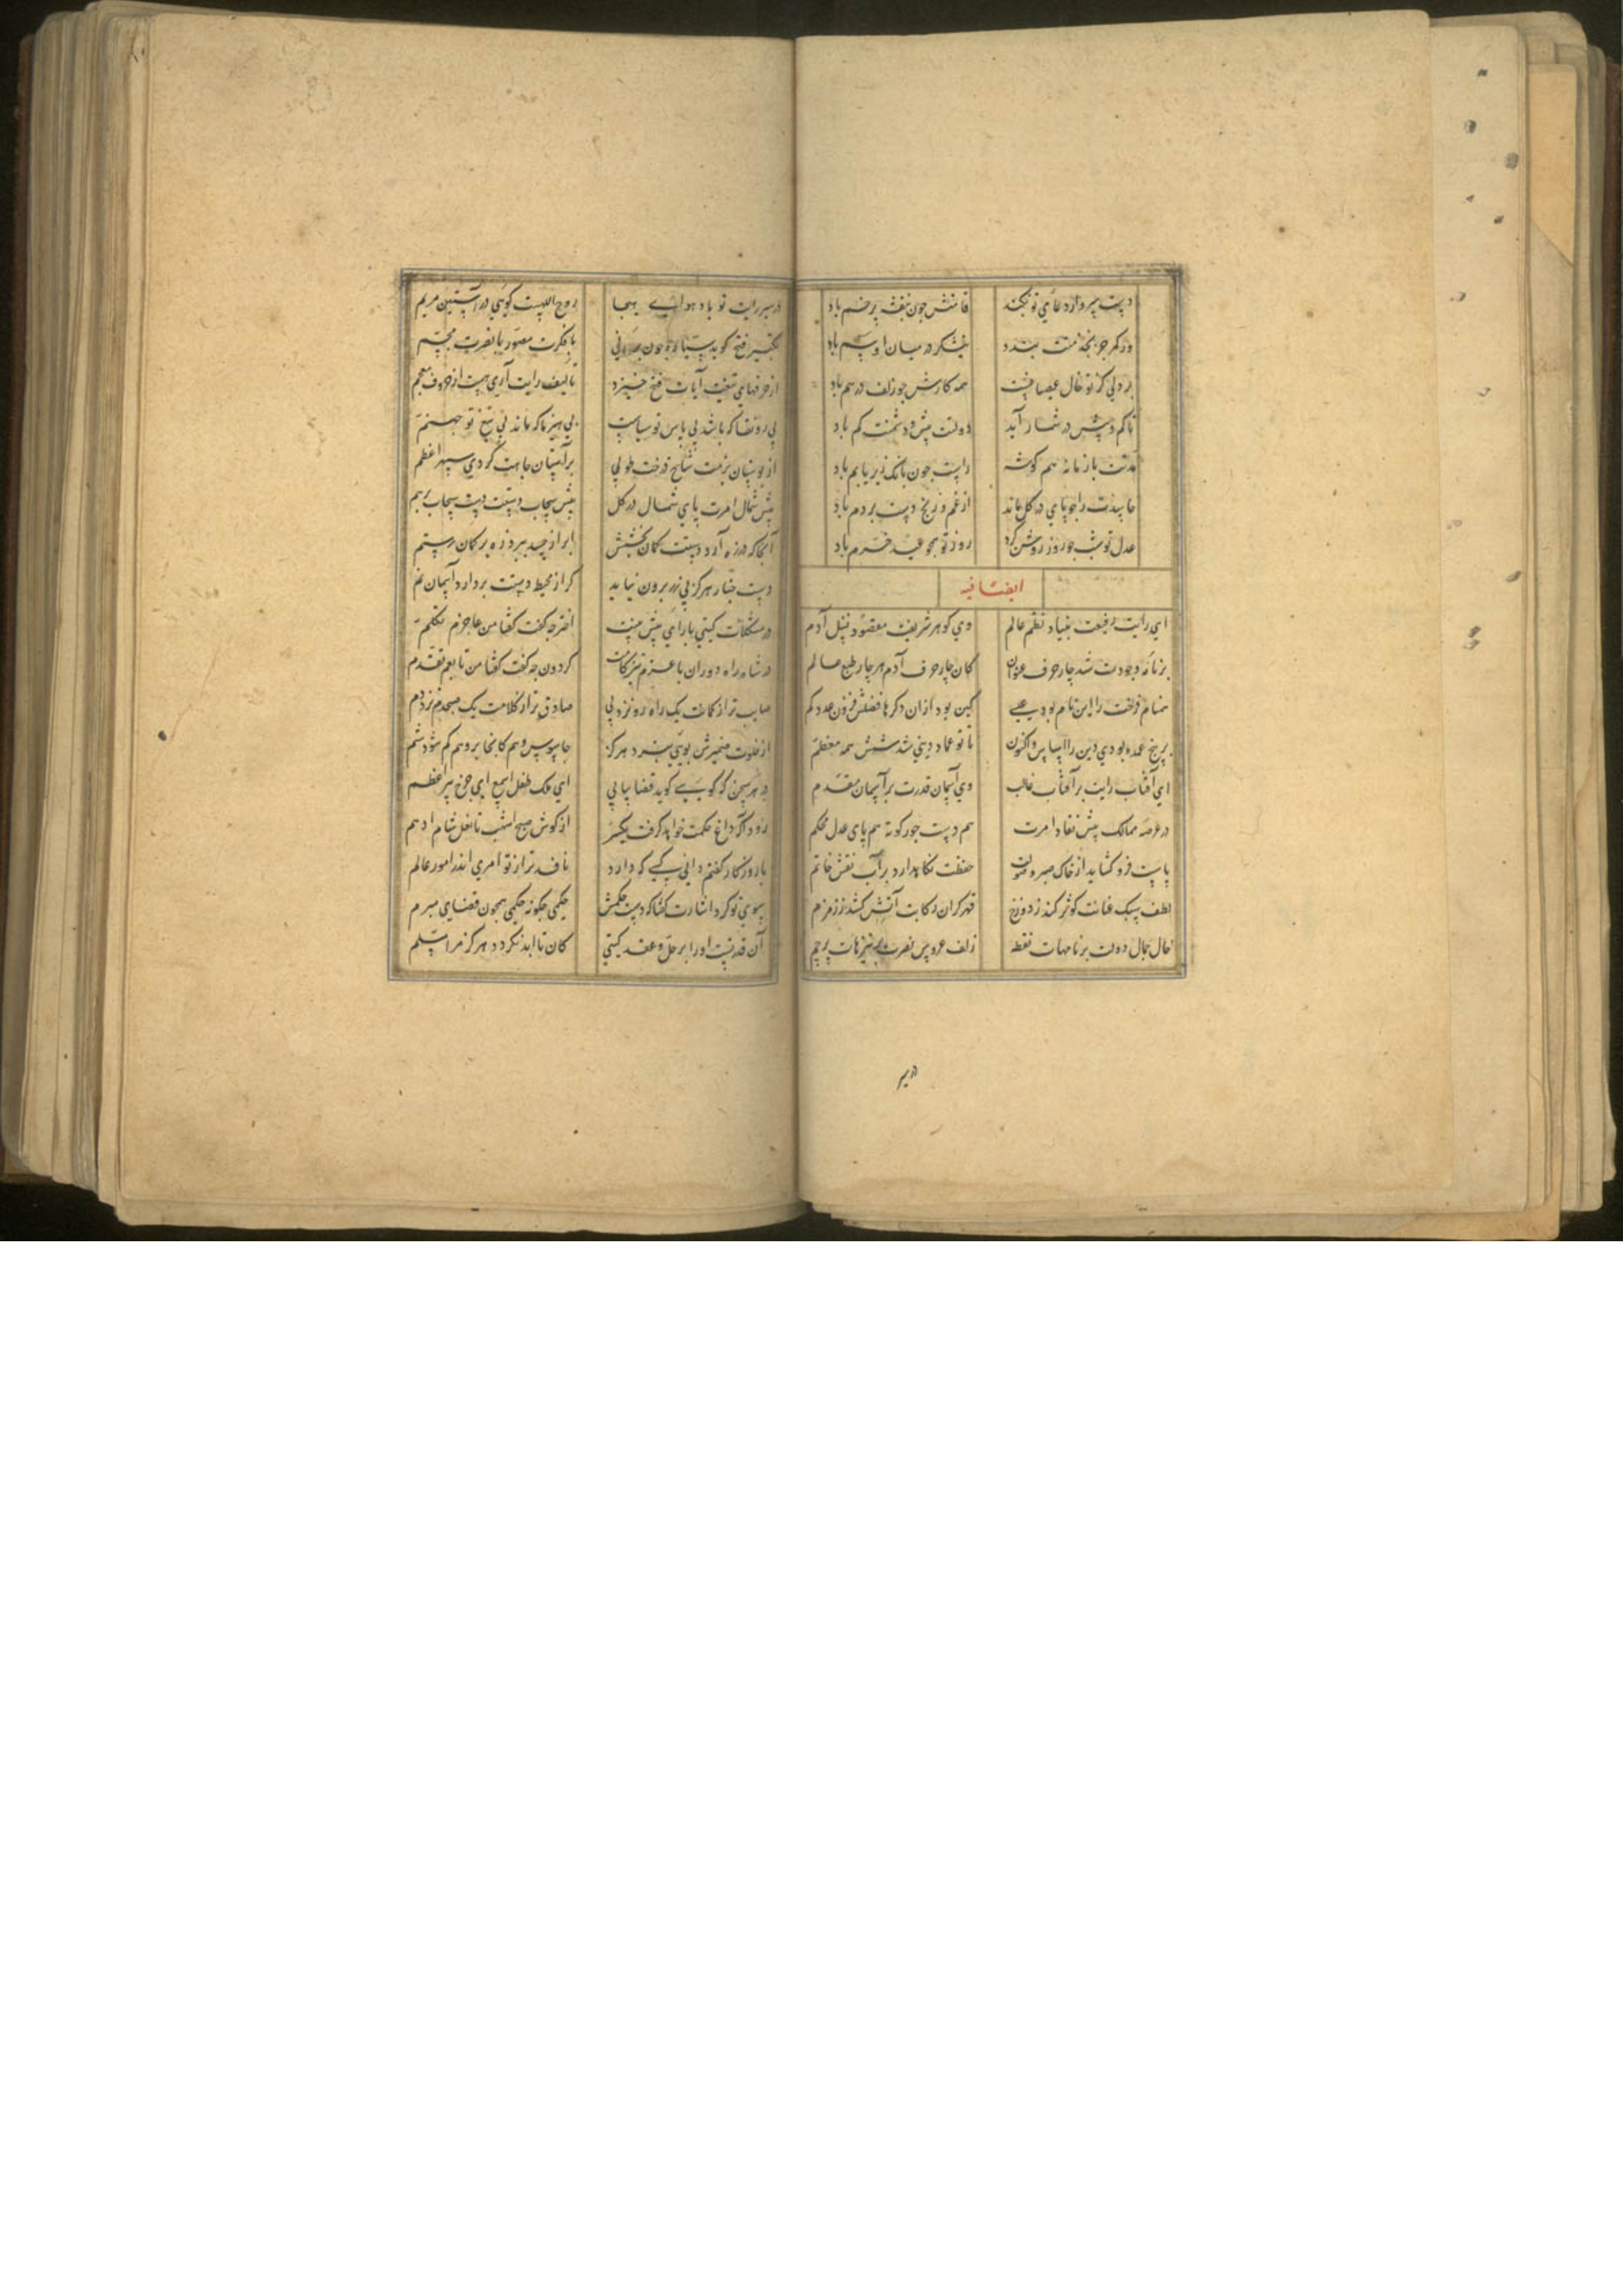 دست پیرواز دعای تو نکند قامتش جون بنفشه پر خم باد
ور کمر جز بخدمتت بندد نیشکر در میان او سم باد
هر دلی کز تو خال عصیانست همه کارش جو زلف درهم باد
تا کم و بیش در شمار آید دولتت بیش و دشمنت کم باد
مدتت با زمانه هم کوشه راست جون بانک زیر با بم باد
حاسدت را جو پای در کل ماند از غم و رنج دست بر دم باد
عدل تو شب جو روز روشن کرد روز تو همجو عید خرم باد
ایضا فیه
ای رایت رفیعت بنیاد نظم عالم وی کوهر شریفت مقصود نسل آدم
بر نامه وجودت شد جار حرف عنوان کان جار حرف آدم هر جار طبع عالم
همنام رخت را این نام بود یعنی کین بود ازان دکرها فضلش فزون عدد کم
بر پنج عمده بودی دین را اساس و اکنون تا تو عماد دینی شد شش همه معظم
ای آفتاب رایت بر آفتاب غالب وی آسمان قدرت بر آسمان مقدم
در عرصه ممالک پیش نفاد امرت هم دست جور کوته هم پای عدل محکم
پاست فرو کشاید از خاک صبر و صولت حفظت نکاه دارد بر آب نقش خاتم
لطف سبک عنانت کوثر کند ز دوزخ قهر کران رکابت آتش کشد ز زمزم
خال جمال دولت بر نامهات نقطه زلف عروس نصرت بر نیزهات پرجم
در سیر
در سیر رایت تو باد هوای هیجا روح اللهست کویی در آستین مریم
تکبیر فتح کوید ستاره جون بر آنی با فکرت مصور با نصرت مجسم
از حرفهای تیغت آیات فتح خیزد تالیف رایت آری هست از حروف معجم
بی رونقا که باشد بی پاس تو سیاست بی هیزما که ماند بی تیغ تو جهنم
از بوستان بزمت شاخ درخت طوبی بر آستان جاهت کردی سپهر اعظم
پیش شمال امرت پای شمال در کل پیش سحاب دستت دست سحاب بر هم
آنجا که در زه آرد دستت کمان بخشش ابر از حسد ببرد زه بر کمان رستم
دست جنار هرکز بی زر برون نیاید کر از محیط دستت بر دارد آسمان نم
در مشکلات کیتی با رای پیش بینت اختر جه کفت کفتا من عاجزم تکلم
در شاه راه دوران با عزم تیزکامت کردون جه کفت کفتا من تابعم تقدم
صایب تر از کمانت یک راه رو نزد پی صادق تر از کلامت یک صبحدم نزد دم
از خلوت ضمیرش بویی نبرد هرکز جاسوس وهم کانجا بر وهم کم شود شم
در هر سخن که کویی کوید قضا پیاپی ای ملک طفل اسمع ای جرخ پیر اعظم
زودا که داغ حکمت خواهد کرفت یکسر از کوش صبح اشهب تا نعل شام ادهم
با روزکار کفتم دانی کسی که دارد نافذتر از تو امری اندر امور عالم
سوی تو کرد اشارت کفتا که دست حکمش حکمی جکونه حکمی همجون قضای مبرم
آن قدرتست او را بر حل و عقد کیتی کان تا ابد نکردد هرکز مرا مسلم